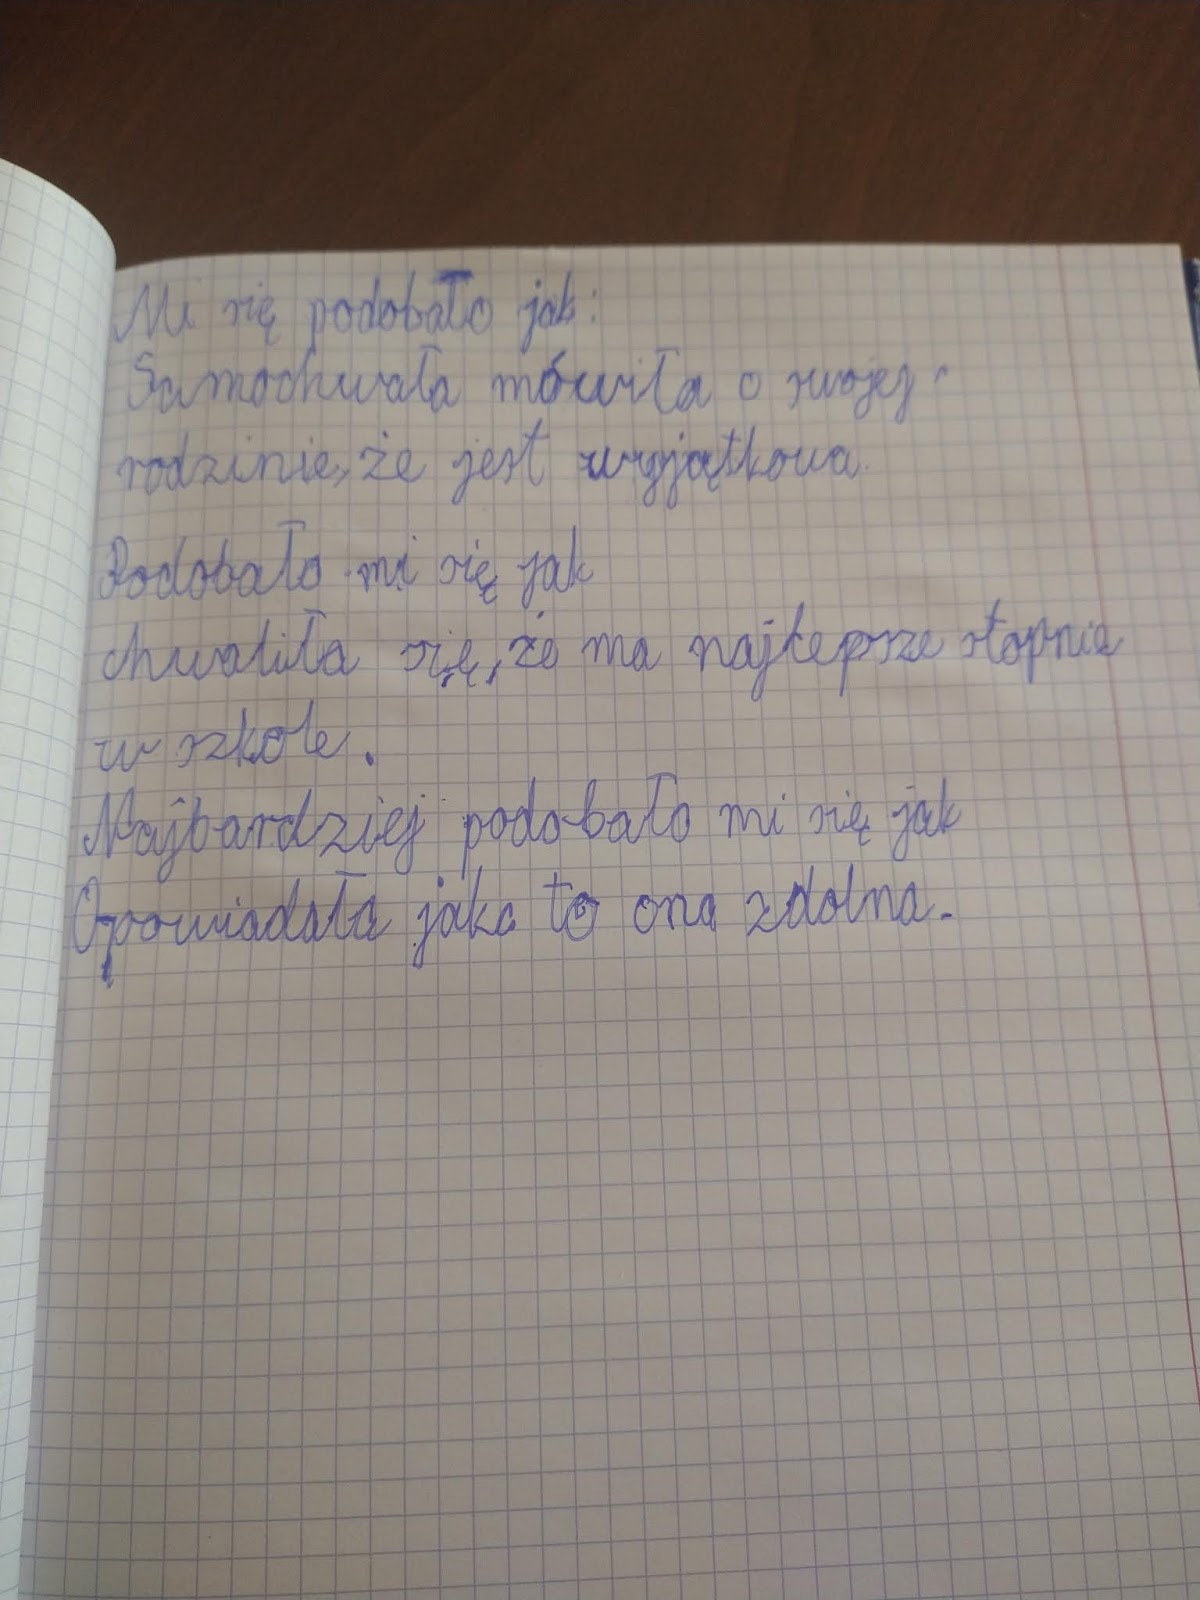 Mi się podobało jak:
Samochwała mówiła o swojej
rodzinie, że jest wyjątkowa.
Podobało mi się jak
chwaliła się, że ma najlepsze stopnie
w szkole.
Najbardziej podobało mi się jak
Opowiadała jaka to ona zdolna.